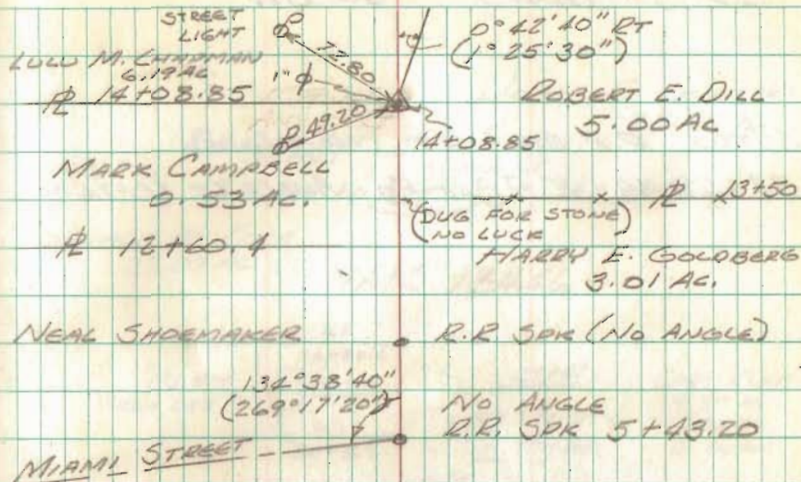 STREET
LIGHT
0°42'40" RT
(1°25'30")
LULU M. CHAPMAN
6.19 AC
72.80
1" ϕ
ROBERT E. DILL
5.00 AC
PL 14+08.85
49.20
14+08.85
MARK CAMPBELL
0.53 AC.
PL 13+50
(DUG FOR STONE)
NO LUCK
PL 12+60.4
HARRY E. GOLDBERG
3.01 AC.
NEAL SHOEMAKER
R.R SPK (NO ANGLE)
134°38'40"
(269°17'20")
NO ANGLE
R.R. SPK 5+43.20
MIAMI STREET